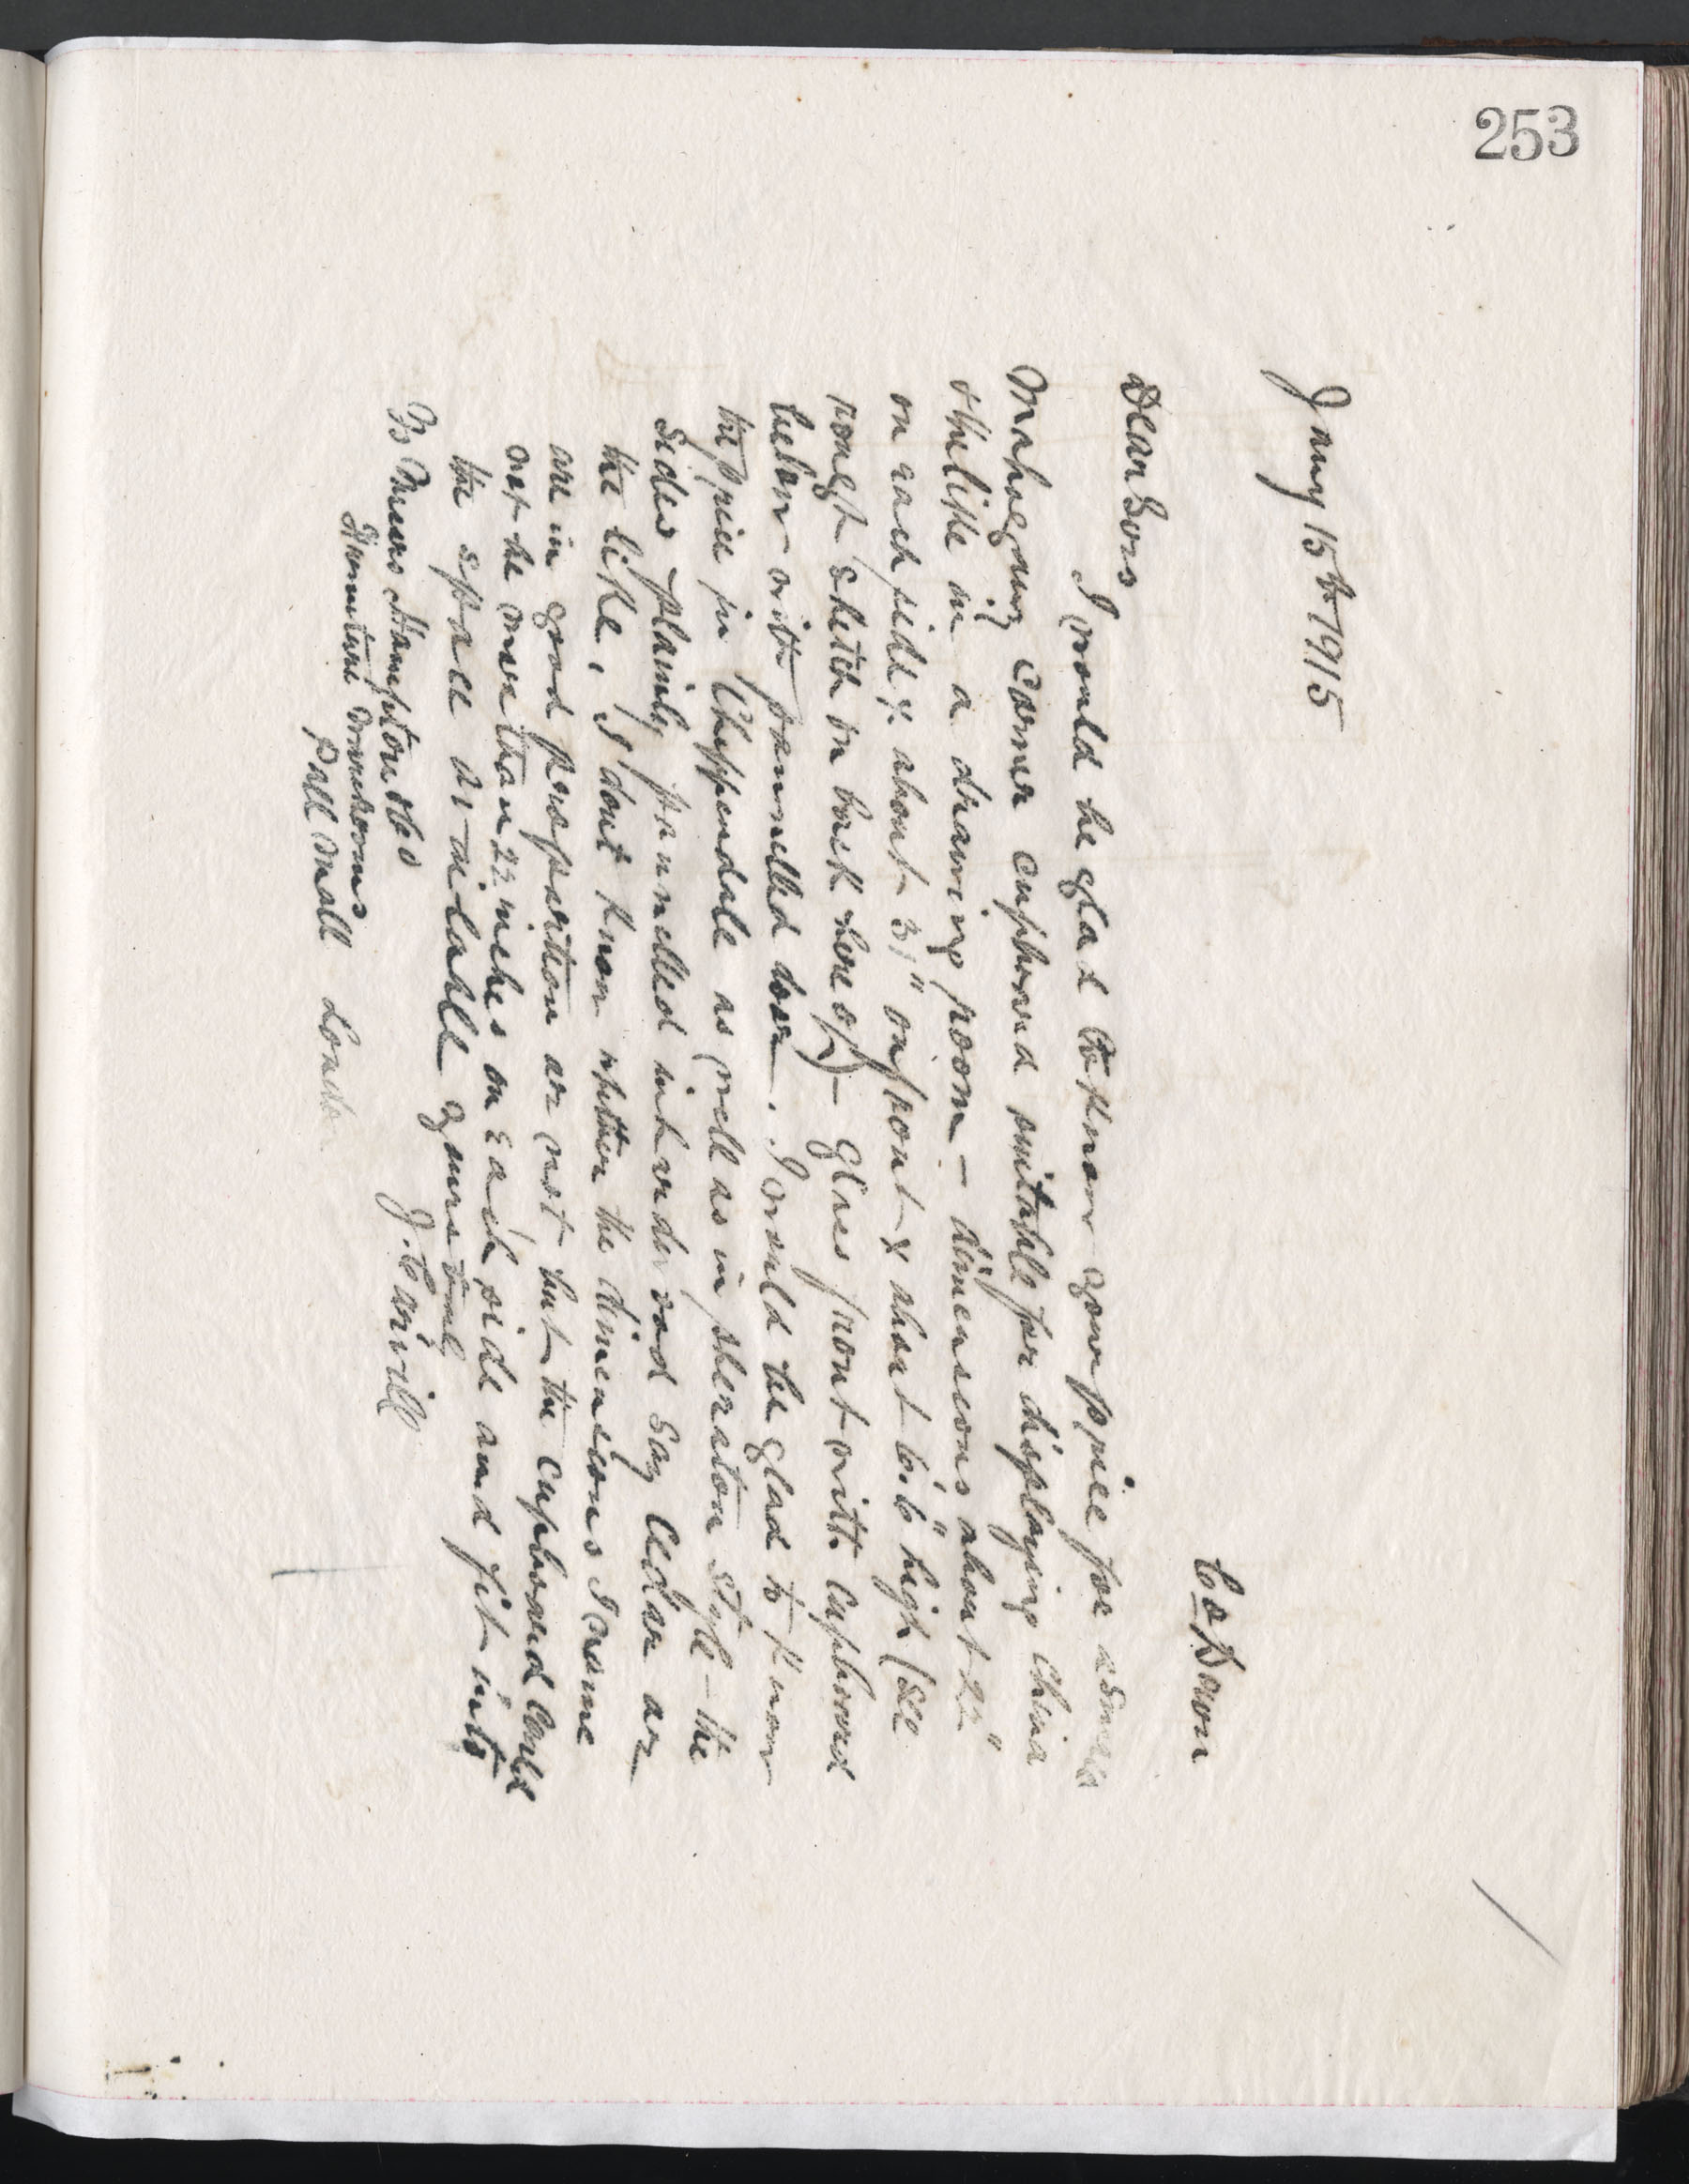 253
Jany 15th 1915
Co Down
Dear Sirs
I would be glad to know your price for a small
Mahogany corner cupboard suitable for displaying china
& the like in a drawing room - dimensions about 22"
on each side & about 31" on front & about 6'.6" high (see
rough sketch on back hereof) - glass front with cupboard
below with pannelled door. I would be glad to know
the price in Chippendale as well as in Sheraton style - the
sides plainly pannelled in hard wood say Cedar or
the like, I dont know whether the dimensions I name
are in good proportion or not but the cupboard could
not be more than 22 inches on each side and fit into
the space available yours truly
J. Carvill
To Messrs Hampton & Co
Furniture Warerooms
Pall Mall London